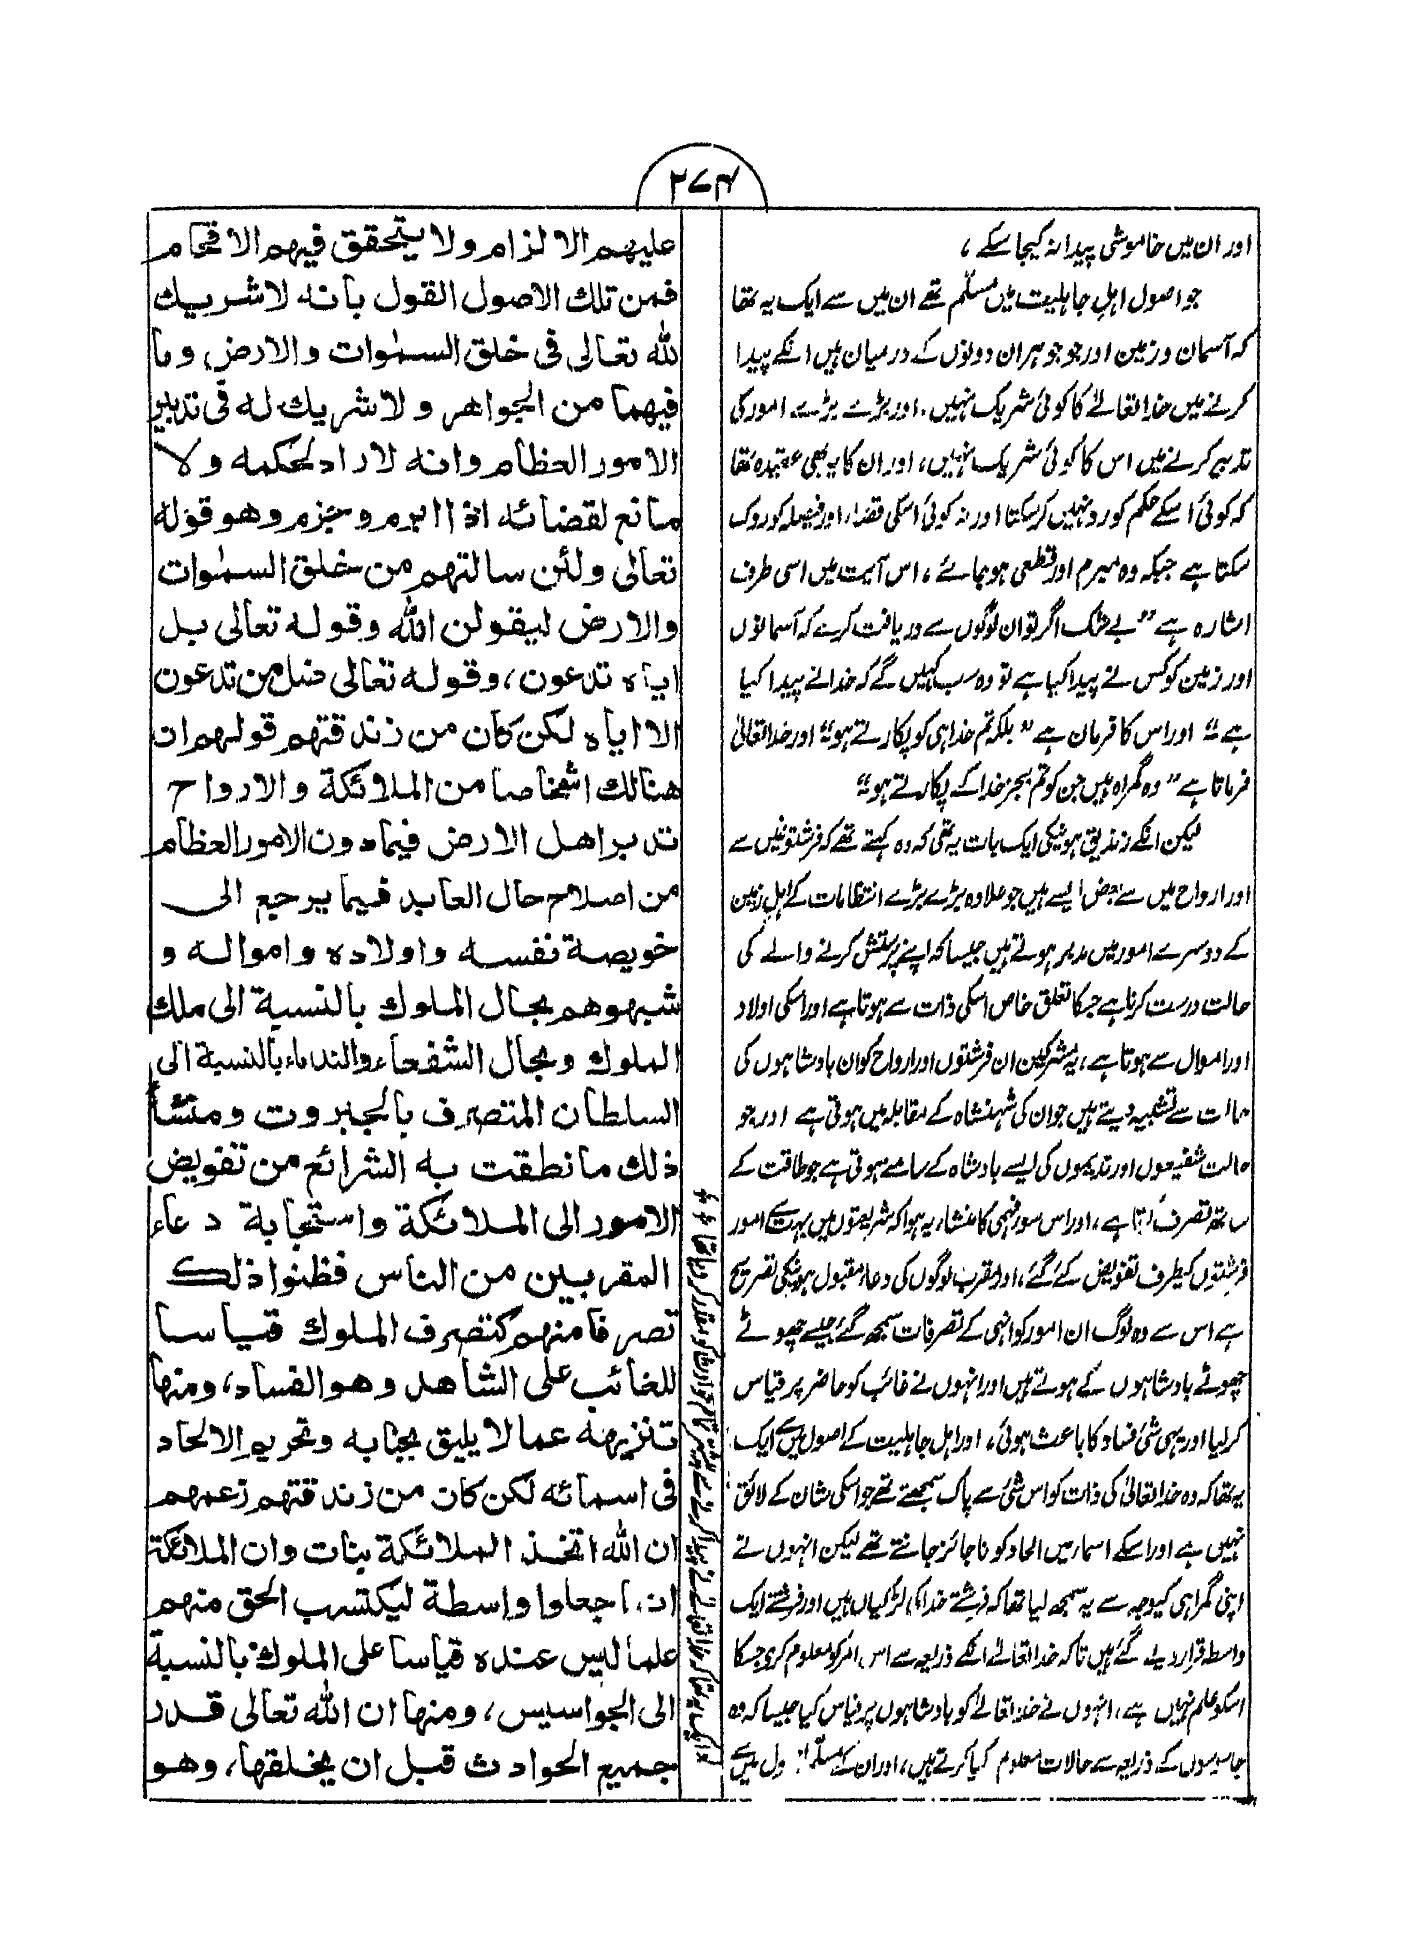 ۲۷۴
اور ان میں خاموشی پیدا نہ کیجا سکے ،
جو اصول اہلِ جاہلیت میں مسلّم تھے ان میں سے ایک یہ تھا
کہ آسمان و زمین اور جو جوہر ان دونوں کے درمیان ہیں انکے پیدا
کرنے میں خدا تعالےٰ کا کوئی شریک نہیں، اور بڑے بڑے امور کی
تدبیر کرنے میں اس کا کوئی شریک نہیں، اور ان کا یہ بھی عقیدہ تھا
کہ کوئی اسکے حکم کو رد نہیں کرسکتا اور نہ کوئی اسکی قضاء اور فیصلہ کو روک
سکتا ہے جبکہ وہ مبرم اور قطعی ہو جائے ، اس آیت میں اسی طرف
اشارہ ہے ” بے شک اگر تو ان لوگوں سے دریافت کرے کہ آسمانوں
اور زمین کو کس نے پیدا کیا ہے تو وہ سب کہیں گے کہ خدا نے پیدا کیا
ہے “ اور اس کا فرمان ہے ” بلکہ تم خدا ہی کو پکارتے ہو “ اور خدا تعالیٰ
فرماتا ہے ” وہ گمراہ ہیں جن کو تم بجز خدا کے پکارتے ہو “
لیکن انکے زندیق ہونیکی ایک بات یہ تھی کہ وہ کہتے تھے کہ فرشتونمیں سے
اور ارواح میں سے بعض ایسے ہیں جو علاوہ بڑے بڑے انتظامات کے اہلِ زمین
کے دوسرے امور میں مدبر ہوتے ہیں جیسا کہ اپنے پرستش کرنے والے کی
حالت درست کرنا ہے جسکا تعلق خاص اسکی ذات سے ہوتا ہے اور اسکی اولاد
اور اموال سے ہوتا ہے ، یہ مشرکین ان فرشتوں اور ارواح کو ان بادشاہوں کی
حالت سے تشبیہ دیتے ہیں جو ان کی شہنشاہ کے مقابلہ میں ہوتی ہے اور جو
حالت شفیعوں اور ندیموں کی ایسے بادشاہ کے سامنے ہوتی ہے جو طاقت کے
ساتھ تصرف کرتا ہے ، اور اس سوء فہمی کا منشاء یہ ہوا کہ شریعتوں میں بہت سے امور
فرشتوں کیطرف تفویض کئے گئے ، اور مقرب لوگوں کی دعاء مقبول ہونیکی تصریح
ہے اس سے وہ لوگ ان امور کو انہی کے تصرفات سمجھ گئے جیسے چھوٹے
چھوٹے بادشاہوں کے ہوتے ہیں اور انہوں نے غائب کو حاضر پر قیاس
کر لیا اور یہی شئ فساد کا باعث ہوئی ، اور اہل جاہلیت کے اصول میں سے ایک
یہ تھا کہ وہ خدا تعالیٰ کی ذات کو اس شئ سے پاک سمجھتے تھے جو اسکی شان کے لائق
نہیں ہے اور اسکے اسماء میں الحاد کو ناجائز جانتے تھے لیکن انہوں نے
اپنی گمراہی کیوجہ سے یہ سمجھ لیا تھا کہ فرشتے خدا کی لڑکیاں ہیں اور فرشتے ایک
واسطہ قرار دیے گئے ہیں تاکہ خدا تعالےٰ انکے ذریعہ سے اس امر کو معلوم کرے جسکا
اسکو علم نہیں ہے ، انہوں نے خدا تعالےٰ کو بادشاہوں پر قیاس کیا جیسا کہ وہ
جاسوسوں کے ذریعہ سے حالات معلوم کیا کرتے ہیں ، اور ان کے مسلّم اصول میں سے
ایک یہ تھا کہ خدا تعالےٰ نے پیدا کرنے سے پیشتر تمام حوادث کو مقدر کر دیا تھا
عليهم الالزام ولا يتحقق فيهم الاقحام
فمن تلك الاصول القول بأنه لا شريك
لله تعالى فى خلق السمٰوات والارض، وما
فيهما من الجواهر ولا شريك له فى تدبير
الامور العظام وانه لا راد لحكمه ولا
مانع لقضائه اذا ابرم وجزم وهو قوله
تعالى ولئن سالتهم من خلق السمٰوات
والارض ليقولن الله وقوله تعالى بل
اياه تدعون ، وقوله تعالى ضل من تدعون
الا اياه لكن كان من زندقتهم قولهم ان
هنالك اشخاصا من الملائكة والارواح
تدبر اهل الارض فيما دون الامور العظام
من اصلاح حال العابد فيما يرجع الى
خويصة نفسه واولاده وامواله و
شبهوهم بحال الملوك بالنسبة الى ملك
الملوك وبحال الشفعاء والندماء بالنسبة الى
السلطان المتصرف بالجبروت ومنشأ
ذلك ما نطقت به الشرائع من تفويض
الامور الى الملائكة واستجابة دعاء
المقربين من الناس فظنوا ذلك
تصرفا منهم كتصرف الملوك قياسا
للغائب على الشاهد وهو الفساد ، ومنها
تنزيهه عما لا يليق بجنابه وتحريم الالحاد
فى اسمائه لكن كان من زندقتهم زعمهم
ان الله اتخذ الملائكة بنات وان الملائكة
انما جعلوا واسطة ليكتسب الحق منهم
علما ليس عنده قياسا على الملوك بالنسبة
الى الجواسيس ، ومنها ان الله تعالى قدر
جميع الحوادث قبل ان يخلقها ، وهو